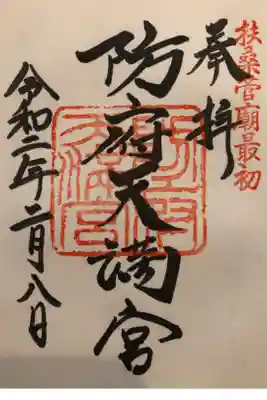 扶桑菅廟最初
奉拝
防府天満宮
令和二年二月八日